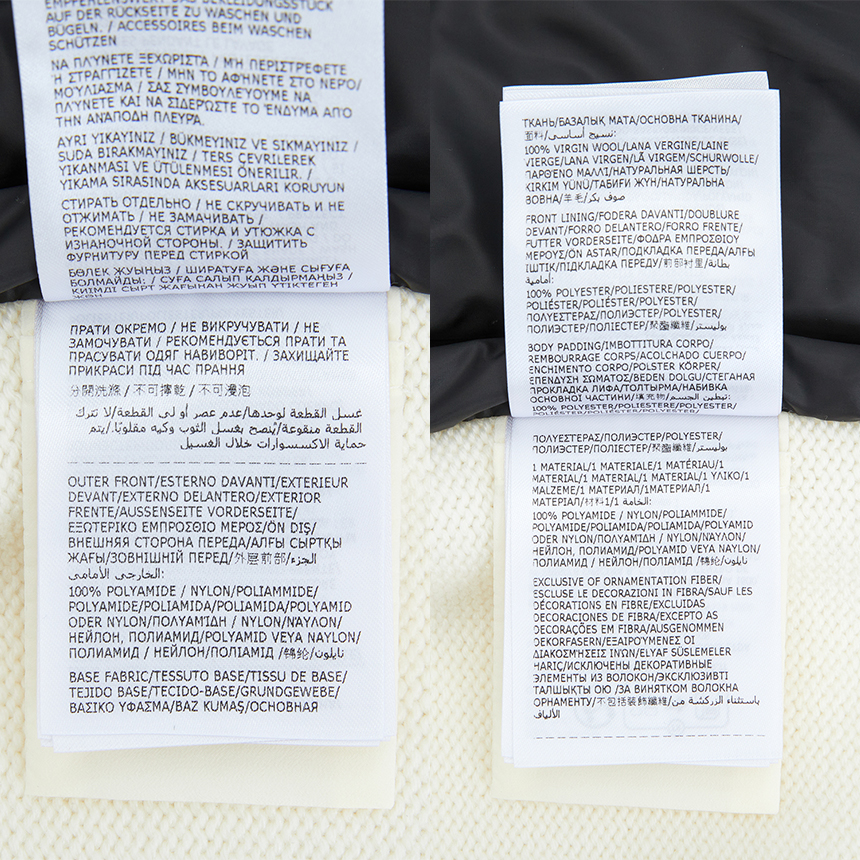 EMPFEHLENSWERT DAS BEKLEIDUNGSSTÜCK
AUF DER RÜCKSEITE ZU WASCHEN UND
BÜGELN. / ACCESSOIRES BEIM WASCHEN
SCHÜTZEN
ΝΑ ΠΛΎΝΕΤΕ ΞΕΧΩΡΙΣΤΆ / ΜΉ ΠΕΡΙΣΤΡΈΦΕΤΕ
Ή ΣΤΡΑΓΓΊΖΕΤΕ / ΜΗΝ ΤΟ ΑΦΉΝΕΤΕ ΣΤΟ ΝΕΡΌ/
ΜΟΎΛΙΑΣΜΑ / ΣΑΣ ΣΥΜΒΟΥΛΕΎΟΥΜΕ ΝΑ
ΠΛΎΝΕΤΕ ΚΑΙ ΝΑ ΣΙΔΕΡΏΣΤΕ ΤΟ ΈΝΔΥΜΑ ΑΠΌ
ΤΗΝ ΑΝΆΠΟΔΗ ΠΛΕΥΡΆ.
AYRI YIKAYINIZ / BÜKMEYINIZ VE SIKMAYINIZ /
SUDA BIRAKMAYINIZ / TERS ÇEVRILEREK
YIKANMASI VE ÜTÜLENMESI ÖNERILIR. /
YIKAMA SIRASINDA AKSESUARLARI KORUYUN
СТИРАТЬ ОТДЕЛЬНО / НЕ СКРУЧИВАТЬ И НЕ
ОТЖИМАТЬ / НЕ ЗАМАЧИВАТЬ /
РЕКОМЕНДУЕТСЯ СТИРКА И УТЮЖКА С
ИЗНАНОЧНОЙ СТОРОНЫ. / ЗАЩИТИТЬ
ФУРНИТУРУ ПЕРЕД СТИРКОЙ
БӨЛЕК ЖУЫҢЫЗ / ШИРАТУҒА ЖӘНЕ СЫҒУҒА
БОЛМАЙДЫ: / СУҒА САЛЫП ҚАЛДЫРМАҢЫЗ /
КИІМДІ СЫРТ ЖАҒЫНАН ЖУЫП ҮТІКТЕГЕН
ЖӨН
ПРАТИ ОКРЕМО / НЕ ВИКРУЧУВАТИ / НЕ
ЗАМОЧУВАТИ / РЕКОМЕНДУЄТЬСЯ ПРАТИ ТА
ПРАСУВАТИ ОДЯГ НАВИВОРІТ. / ЗАХИЩАЙТЕ
ПРИКРАСИ ПІД ЧАС ПРАННЯ
分開洗滌 / 不可擰乾 / 不可漫泡
غسل القطعة لوحدها/عدم عصر أو لي القطعة/لا تترك
القطعة منقوعة/يُنصح بغسل الثوب وكيه مقلوبًا./يتم
حماية الاكسسوارات خلال الغسيل
OUTER FRONT/ESTERNO DAVANTI/EXTERIEUR
DEVANT/EXTERNO DELANTERO/EXTERIOR
FRENTE/AUSSENSEITE VORDERSEITE/
ΕΞΩΤΕΡΙΚΌ ΕΜΠΡΌΣΘΙΟ ΜΈΡΟΣ/ÖN DIŞ/
ВНЕШНЯЯ СТОРОНА ПЕРЕДА/АЛҒЫ СЫРТҚЫ
ЖАҒЫ/ЗОВНІШНІЙ ПЕРЕД/外層前部/الجزء
الخارجي الأمامي:
100% POLYAMIDE / NYLON/POLIAMMIDE/
POLYAMIDE/POLIAMIDA/POLIAMIDA/POLYAMID
ODER NYLON/ΠΟΛΥΑΜΊΔΗ / NYLON/ΝΆΥΛΟΝ/
НЕЙЛОН, ПОЛИАМИД/POLYAMID VEYA NAYLON/
ПОЛИАМИД / НЕЙЛОН/ПОЛІАМІД /錦綸/نايلون/
BASE FABRIC/TESSUTO BASE/TISSU DE BASE/
TEJIDO BASE/TECIDO-BASE/GRUNDGEWEBE/
ΒΑΣΙΚΌ ΎΦΑΣΜΑ/BAZ KUMAŞ/ОСНОВНАЯ
ТКАНЬ/БАЗАЛЫҚ МАТА/ОСНОВНА ТКАНИНА/
面料/نسيج أساسي:
100% VIRGIN WOOL/LANA VERGINE/LAINE
VIERGE/LANA VIRGEN/LÃ VIRGEM/SCHURWOLLE/
ΠΑΡΘΈΝΟ ΜΑΛΛΊ/НАТУРАЛЬНАЯ ШЕРСТЬ/
KIRKIM YÜNÜ/ТАБИҒИ ЖҮН/НАТУРАЛЬНА
ВОВНА/羊毛/صوف بكر
FRONT LINING/FODERA DAVANTI/DOUBLURE
DEVANT/FORRO DELANTERO/FORRO FRENTE/
FUTTER VORDERSEITE/ΦΌΔΡΑ ΕΜΠΡΌΣΘΙΟΥ
ΜΈΡΟΥΣ/ÖN ASTAR/ПОДКЛАДКА ПЕРЕДА/АЛҒЫ
ІШТІК/ПІДКЛАДКА ПЕРЕДУ/前部衬里/بطانة
أمامية:
100% POLYESTER/POLIESTERE/POLYESTER/
POLIÉSTER/POLIÉSTER/POLYESTER/
ΠΟΛΥΕΣΤΈΡΑΣ/ПОЛИЭСТЕР/POLYESTER/
ПОЛИЭСТЕР/ПОЛІЕСТЕР/聚酯纖維/بوليستر/
BODY PADDING/IMBOTTITURA CORPO/
REMBOURRAGE CORPS/ACOLCHADO CUERPO/
ENCHIMENTO CORPO/POLSTER KÖRPER/
ΕΠΈΝΔΥΣΗ ΣΏΜΑΤΟΣ/BEDEN DOLGU/СТЕГАНАЯ
ПРОКЛАДКА ЛИФА/ТОЛТЫРМА/НАБИВКА
ОСНОВНОЇ ЧАСТИНИ/填充物/تبطين الجسم:
100% POLYESTER/POLIESTERE/POLYESTER/
ΠΟΛΥΕΣΤΈΡΑΣ/ПОЛИЭСТЕР/POLYESTER/
ПОЛИЭСТЕР/ПОЛІЕСТЕР/聚酯纖維/بوليستر/
1 MATERIAL/1 MATERIALE/1 MATÉRIAU/1
MATERIAL/1 MATERIAL/1 MATERIAL/1 ΥΛΙΚΌ/1
MALZEME/1 МАТЕРИАЛ/1МАТЕРИАЛ/1
МАТЕРІАЛ/材料1/1 الخامة:
100% POLYAMIDE / NYLON/POLIAMMIDE/
POLYAMIDE/POLIAMIDA/POLIAMIDA/POLYAMID
ODER NYLON/ΠΟΛΥΑΜΊΔΗ / NYLON/ΝΆΥΛΟΝ/
НЕЙЛОН, ПОЛИАМИД/POLYAMID VEYA NAYLON/
ПОЛИАМИД / НЕЙЛОН/ПОЛІАМІД /錦綸/نايلون/
EXCLUSIVE OF ORNAMENTATION FIBER/
ESCLUSE LE DECORAZIONI IN FIBRA/SAUF LES
DÉCORATIONS EN FIBRE/EXCLUIDAS
DECORACIONES DE FIBRA/EXCEPTO AS
DECORAÇÕES EM FIBRA/AUSGENOMMEN
DEKORFASERN/ΕΞΑΙΡΟΎΜΕΝΕΣ ΟΙ
ΔΙΑΚΟΣΜΉΣΕΙΣ ΙΝΏΝ/ELYAF SÜSLEMELER
HARIÇ/ИСКЛЮЧЕНЫ ДЕКОРАТИВНЫЕ
ЭЛЕМЕНТЫ ИЗ ВОЛОКОН/ЭКСКЛЮЗИВТІ
ТАЛШЫҚТЫ ОЮ /ЗА ВИНЯТКОМ ВОЛОКНА
ОРНАМЕНТУ/不包括装飾纖維/باستثناء الزركشة من
الألياف